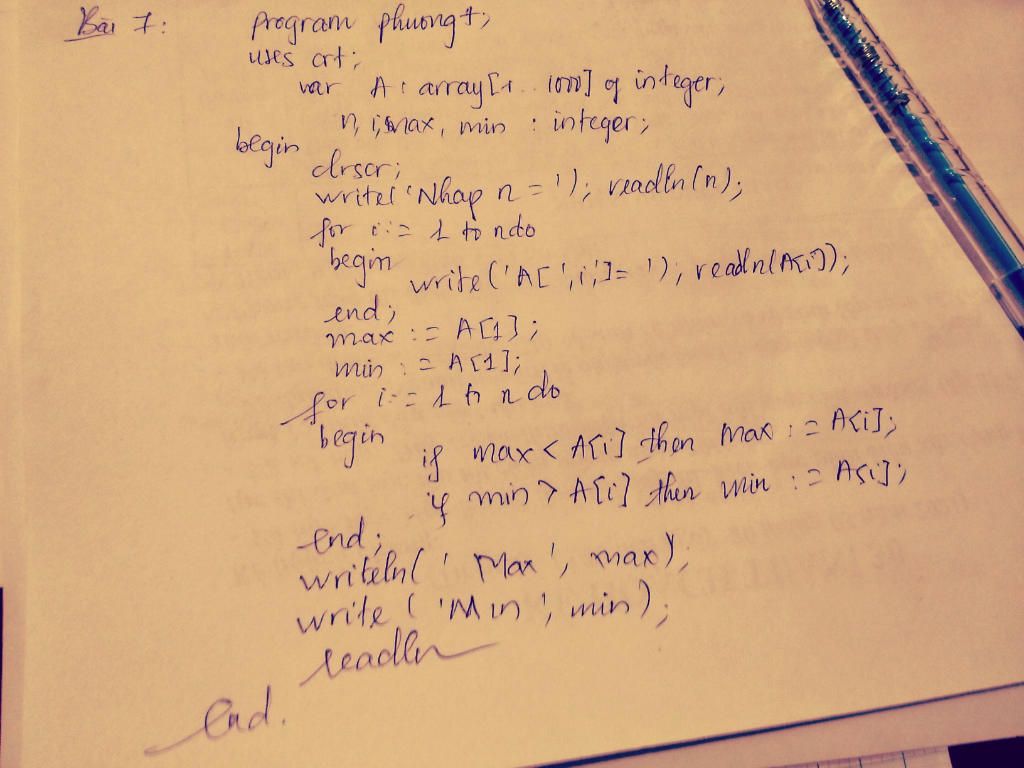 Bài 7: program phuong7;
uses crt;
var A : array[1..1000] of integer;
n, i, max, min : integer;
begin
clrscr;
write('Nhap n = '); readln(n);
for i := 1 to n do
begin
write('A[',i,']= '); readln(A[i]);
end;
max := A[1];
min := A[1];
for i := 1 to n do
begin
if max < A[i] then max := A[i];
if min > A[i] then min := A[i];
end;
writeln(' Max', max);
write ('Min', min);
readln
end.